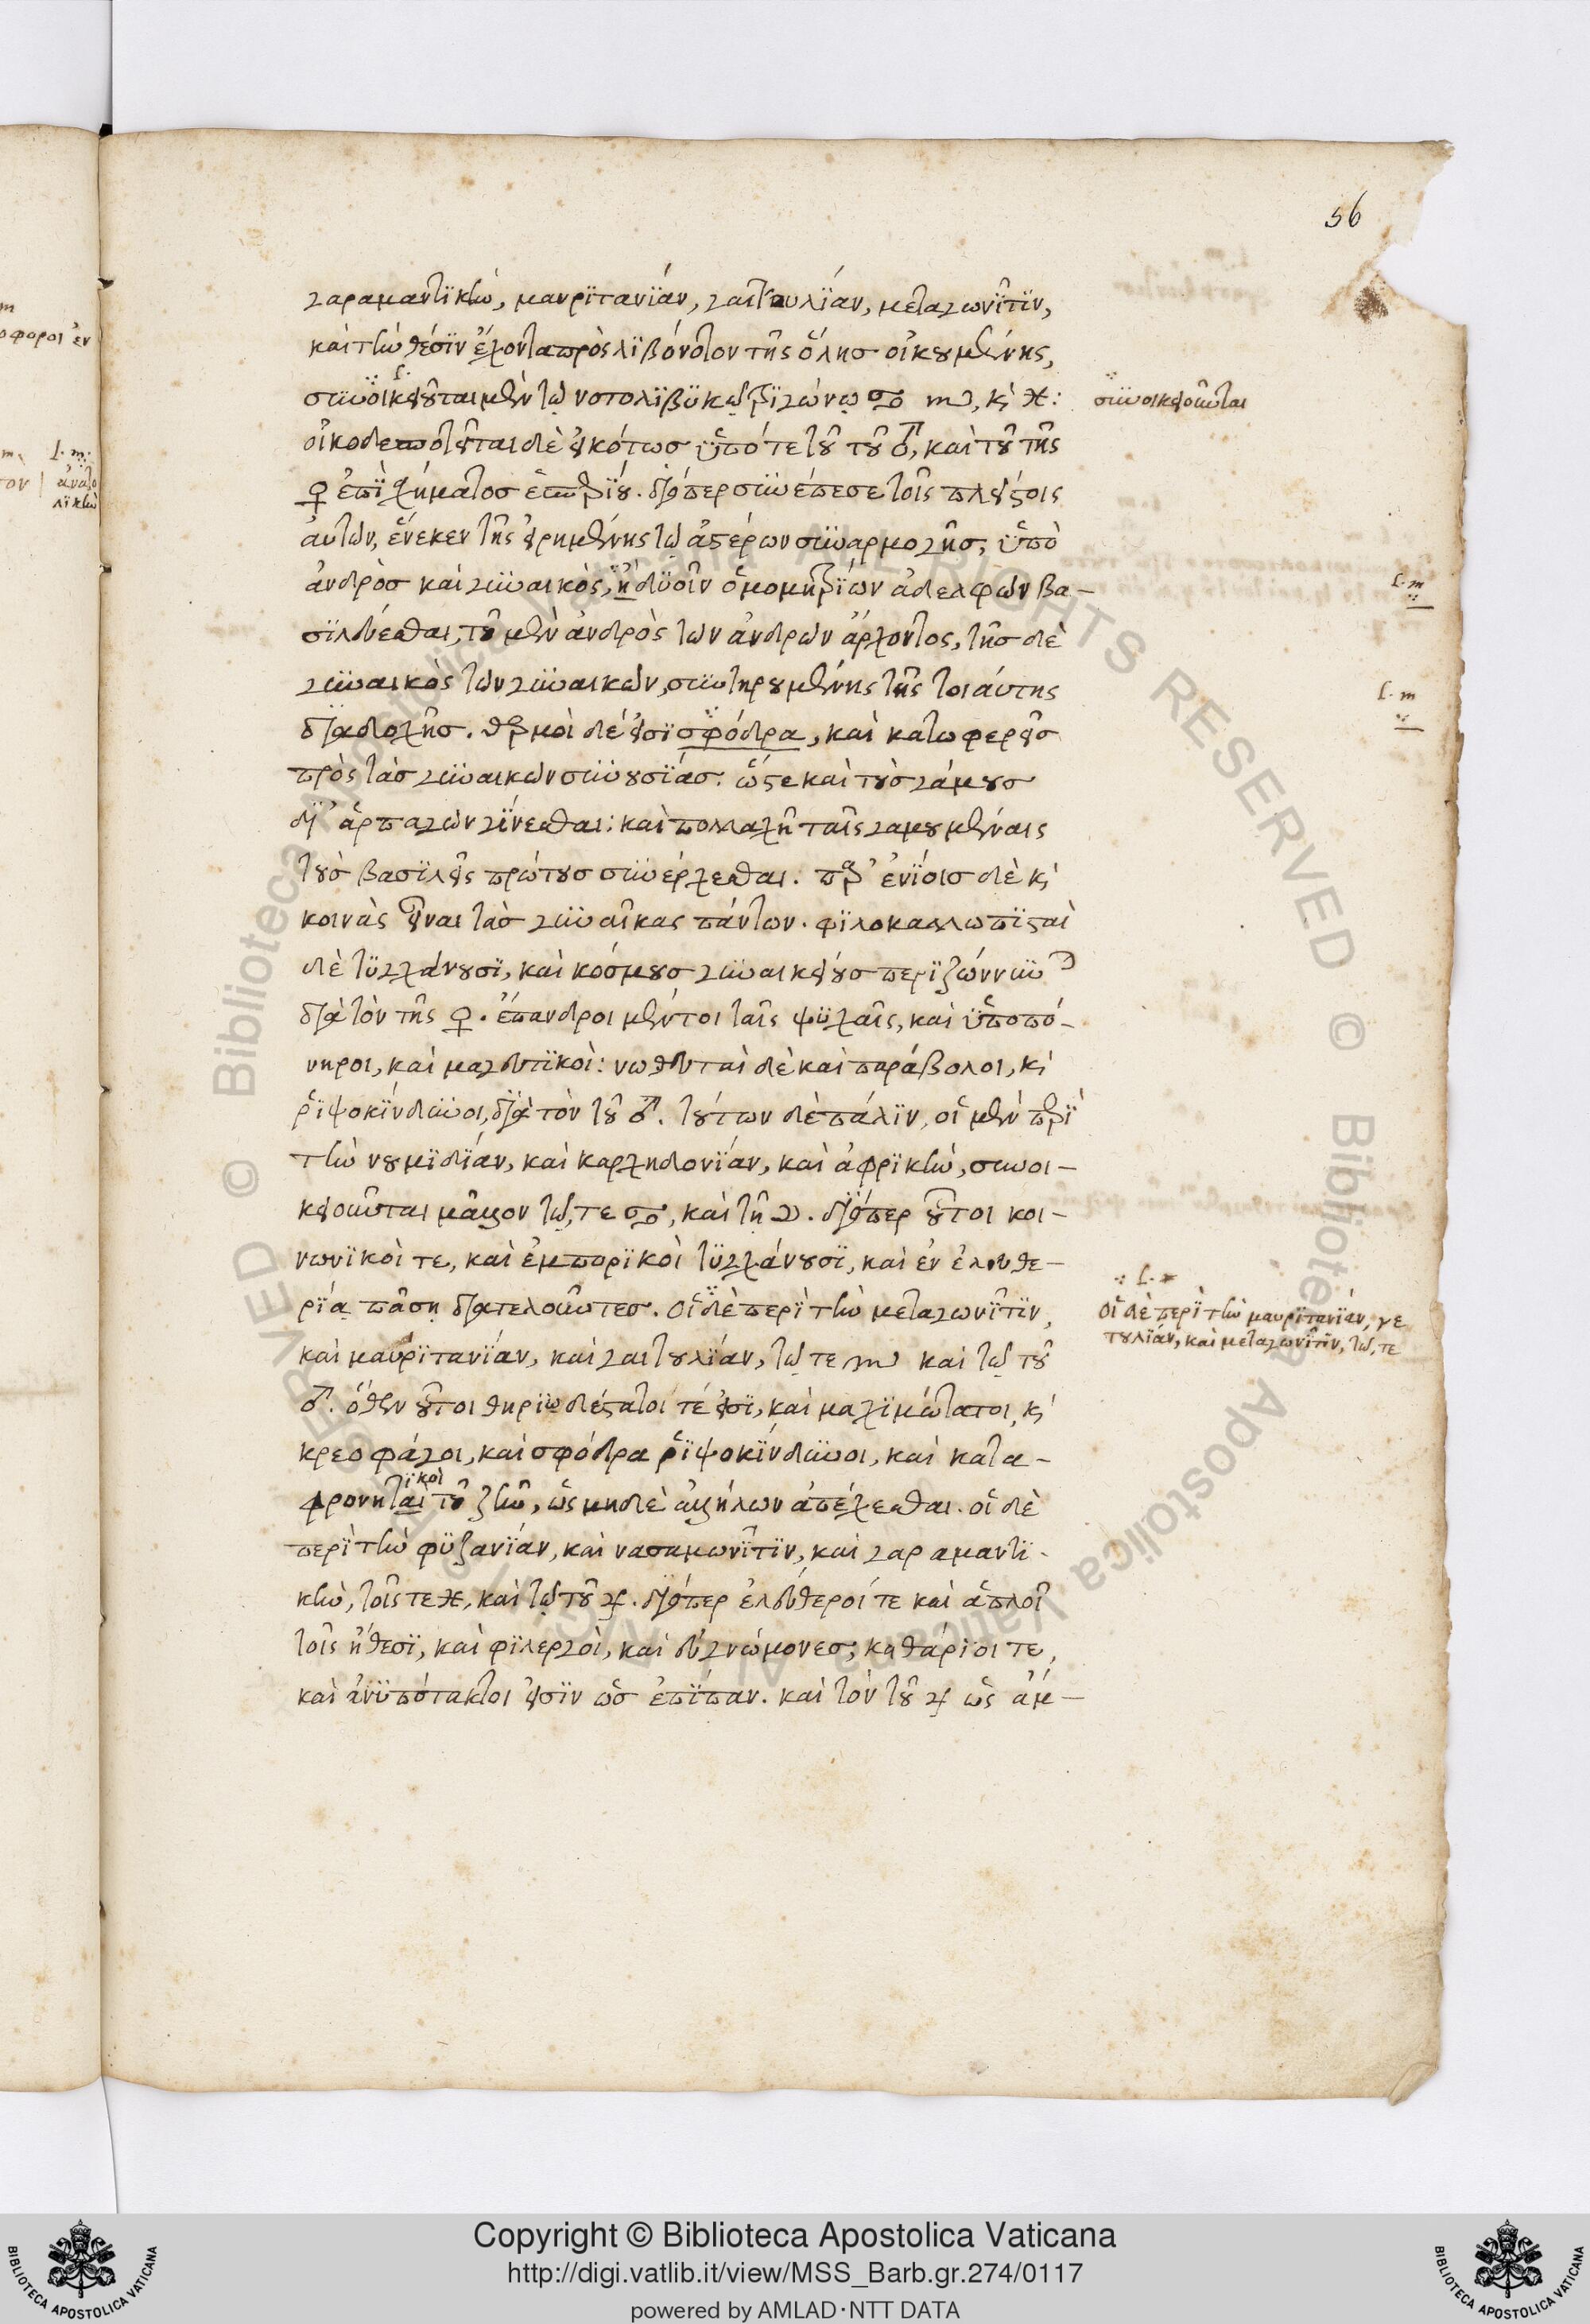 56
γαραμαντικὴν, μαυρϊτανϊάν, γαιτουλϊάν, μεταγωνῖτϊν,
καὶ τὴν θέσϊν ἔχοντα πρὸς λϊβόνοτον τῆς ὅλησ οἰκουμένης,
συνοικειοῦται μὲν τῷ νοτολϊβϋκῷ τριγώνῳ ♋ ♏, κὶ ♓:
οἰκοδεσποτεῖται δὲ εἰκότωσ ὑπό τε τοῦ τοῦ ♂, καὶ τοῦ τῆς
♀ ἐπὶ σχήματοσ ἑσπερίου. διόπερ συνέπεσε τοῖς πλείστοις
αὐτῶν, ἕνεκεν τῆς εἰρημένης τῶ ἀστέρων συναρμογῆσ, ὑπὸ
ἀνδρὸσ καὶ γυναικὸς, ἢ δϋοῖν ὁμομητρϊων ἀδελφῶν βα-
σϊλεύεσθαι, τοῦ μὲν ἀνδρὸς τῶν ἀνδρῶν ἄρχοντος, τῆσ δὲ
γυναικὸς τῶν γυναικῶν, συντηρουμένης τῆς τοιάυτης
διαδοχῆσ. θερμοὶ δέ εἰσϊ σφόδρα, καὶ κατωφερεῖσ
πρὸς τὰσ γυναικῶν συνουσϊάσ. ὥστε καὶ τοὺσ γάμουσ
δϊ' ἁρπαγῶν γϊνεσθαι: καὶ πολλαχῆ ταῖς γαμουμέναις
τοὺσ βασϊλεῖς πρώτουσ συνέρχεσθαι. παρ' ἐνϊοισ δὲ κὶ
κοινὰς εἶναι τὰσ γυναῖκας πάντων. φϊλοκαλλωπϊσταὶ
δὲ τϋγχάνουσϊ, καὶ κόσμουσ γυναικείουσ περϊζώννυν
διὰ τὸν τῆς ♀. ἔπανδροι μέντοι ταῖς ψϋχαῖς, καὶ ὑποπό-
νηροι, καὶ μαγευτϊκοὶ: νωθευταὶ δὲ καὶ παράβολοι, κὶ
ῥϊψοκϊνδυνοι, διὰ τὸν τοῦ ♂. τούτων δὲ πάλϊν, οἱ μὲν περὶ
τὴν νουμϊδϊάν, καὶ καρχηδονϊάν, καὶ ἀφρϊκὴν, συνοι-
κειοῦνται μᾶλλον τῷ, τε ♋, καὶ τῆ ☽. διόπερ οὗτοι κοι-
νωνϊκοὶ τε, καὶ ἐμπορϊκοὶ τϋγχάνουσϊ, καὶ ἐν ἐλευθε-
ρϊᾳ πᾶσῃ διατελοῦντεσ. οἱ δὲ περὶ τὴν μεταγωνῖτϊν,
καὶ μαυρϊτανϊάν, καὶ γαιτουλϊάν, τῷ τε ♏ καὶ τῷ τοῦ
♂. ὅθεν οὗτοι θηρϊωδέστατοι τέ εἰσϊ, καὶ μαχϊμώτατοι, κὶ
κρεοφάγοι, καὶ σφόδρα ῥϊψοκϊνδυνοι, καὶ κατα-
φρονηταὶ ϊκοὶ τοῦ ζῆν, ὡς μηδὲ ἀλλήλων ἀπέχεσθαι. οἱ δὲ
περὶ τὴν φϋζανϊάν, καὶ νασαμωνῖτϊν, καὶ γαραμαντϊ-
κὴν, τοῖς τε ♓, καὶ τῷ τοῦ ♃. διόπερ ἐλεύθεροί τε καὶ ἁπλοῖ
τοῖς ἤθεσϊ, καὶ φϊλεργοὶ, καὶ εὐγνώμονεσ, καθάρϊοι τε,
καὶ ἀνϋπότακτοι εἰσϊν ὡσ ἐπϊπαν. καὶ τὸν τοῦ ♃ ὡς ἀμ-
συνοικειοῦνται
l. m
l. m
οἱ δὲ περὶ τὴν μαυρϊτανϊάν, γε
τουλϊάν, καὶ μεταγωνῖτϊν, τῷ, τε
Copyright © Biblioteca Apostolica Vaticana
http://digi.vatlib.it/view/MSS_Barb.gr.274/0117
powered by AMLAD·NTT DATA